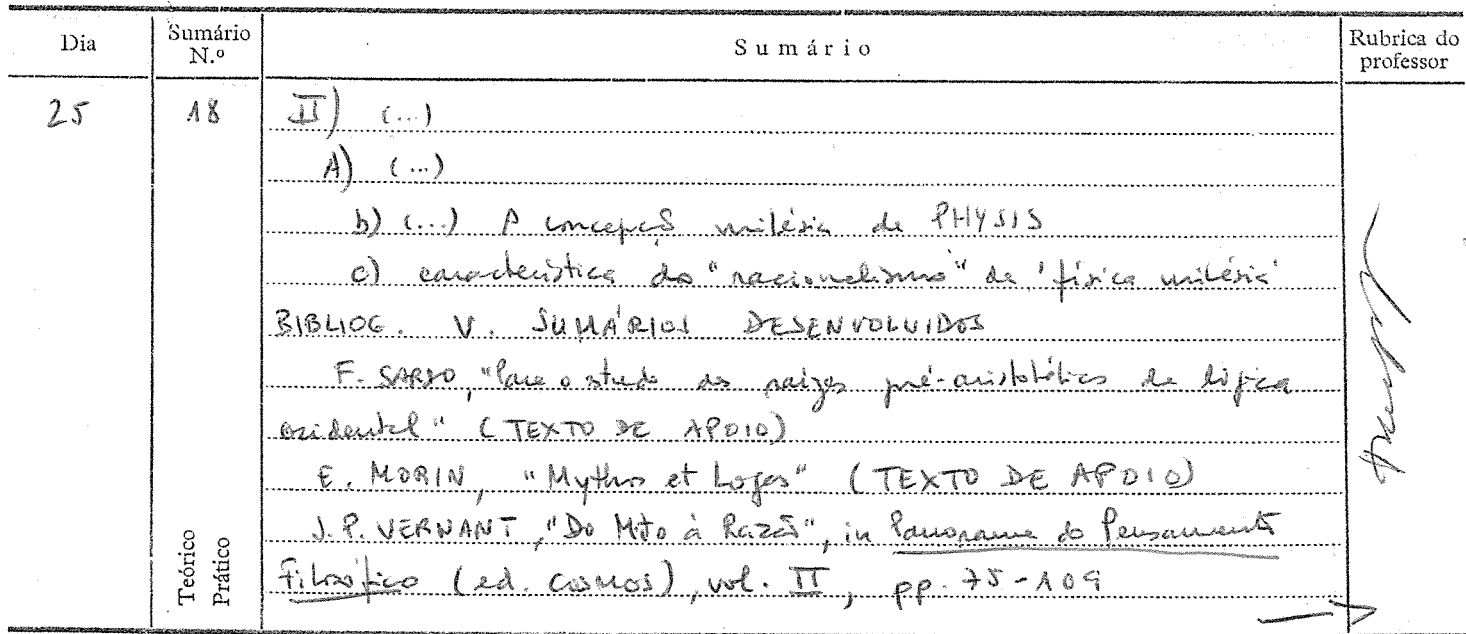 Dia Sumário N.º Sumário Rubrica do professor
25 18 II) (...)
A) (...)
b) (...) A concepção milésia de PHYSIS
c) característica do "racionalismo" da 'física milésia'
BIBLIOG. V. SUMÁRIOS DESENVOLVIDOS
F. SARDO, "Para o estudo das raízes pré-aristotélicas da lógica
ocidental" (TEXTO DE APOIO)
E. MORIN, "Mythos et Logos" (TEXTO DE APOIO)
J. P. VERNANT, "Do Mito à Razão", in Panorama do Pensamento
Filosófico (ed. Cosmos), vol. II, pp. 75-109
Teórico
Prático